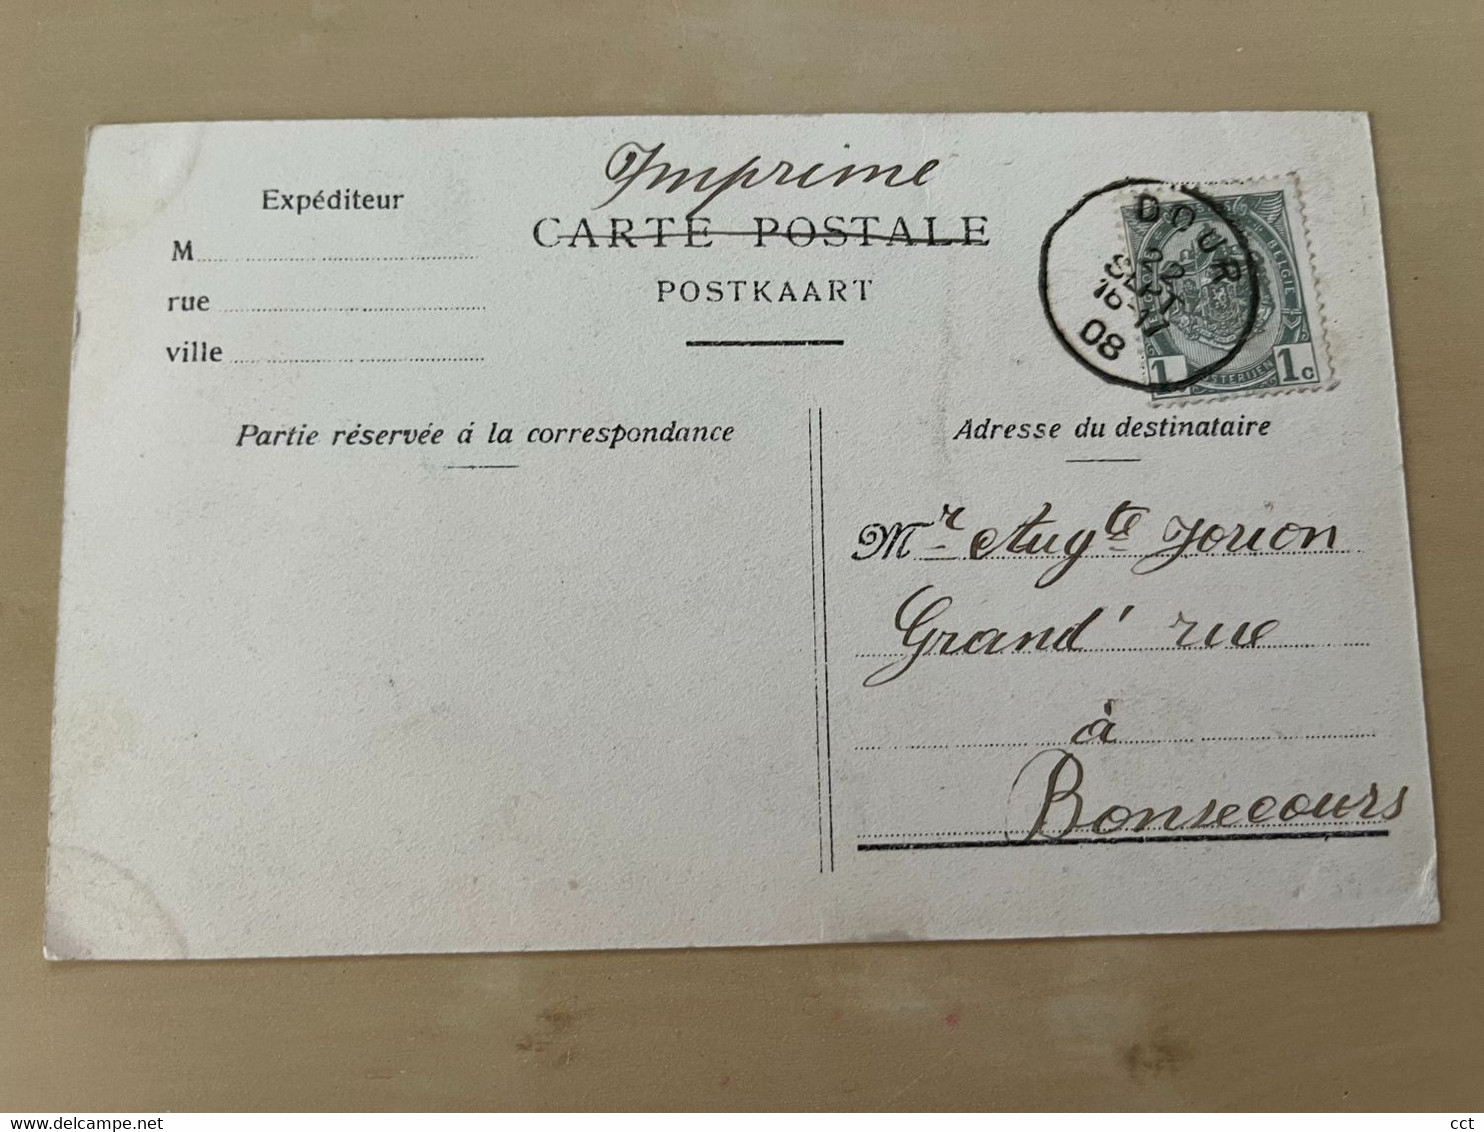 Imprime
CARTE POSTALE
POSTKAART
Expéditeur
M
rue
ville
DOUR
22
SEPT
16-17
08
BELGIE
1 1c
Partie réservée á la correspondance
Adresse du destinataire
Mr Augte Jorion
Grand' rue
à
Bonsecours
cct